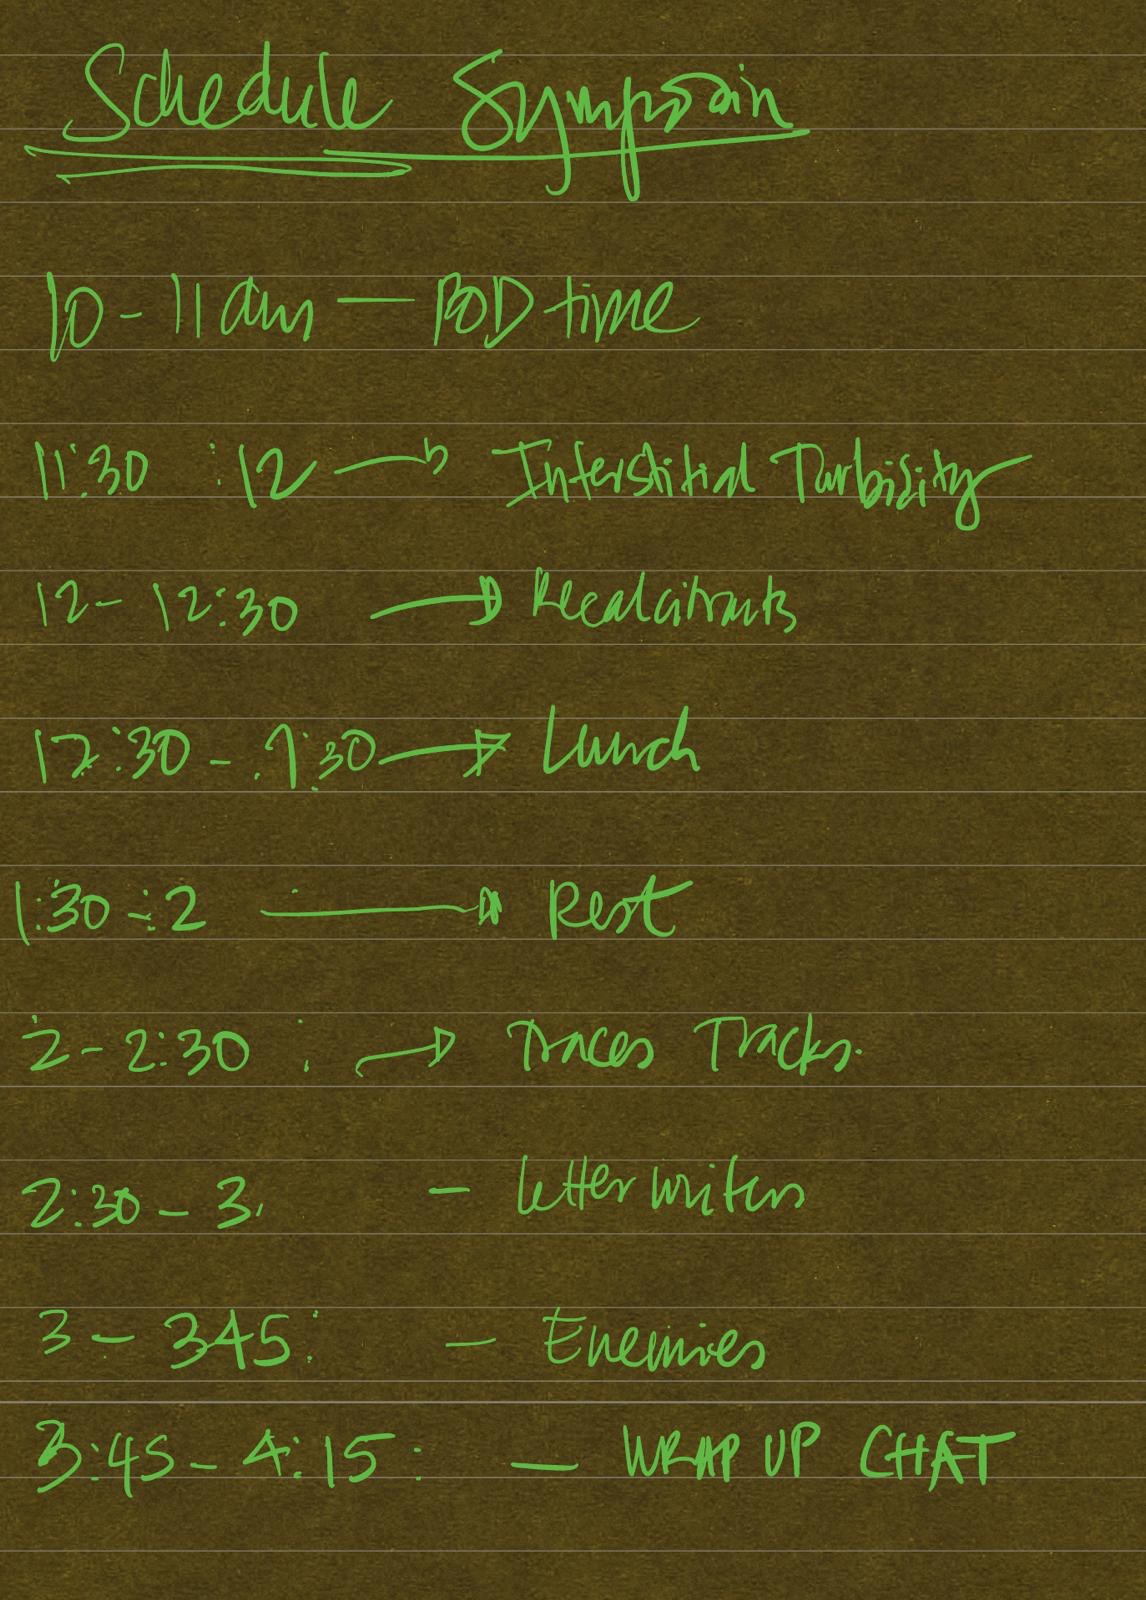 Schedule Symposin
10 - 11 am — POD time
11:30 : 12 → Interstitial Turbidity
12 - 12:30 → Recalcitrants
12:30 - 1:30 → Lunch
1:30 - 2 → Rest
2 - 2:30 : → Traces Tracks.
2:30 - 3, - letter writers
3 - 345: - Enemies
3:45 - 4:15: — WRAP UP CHAT